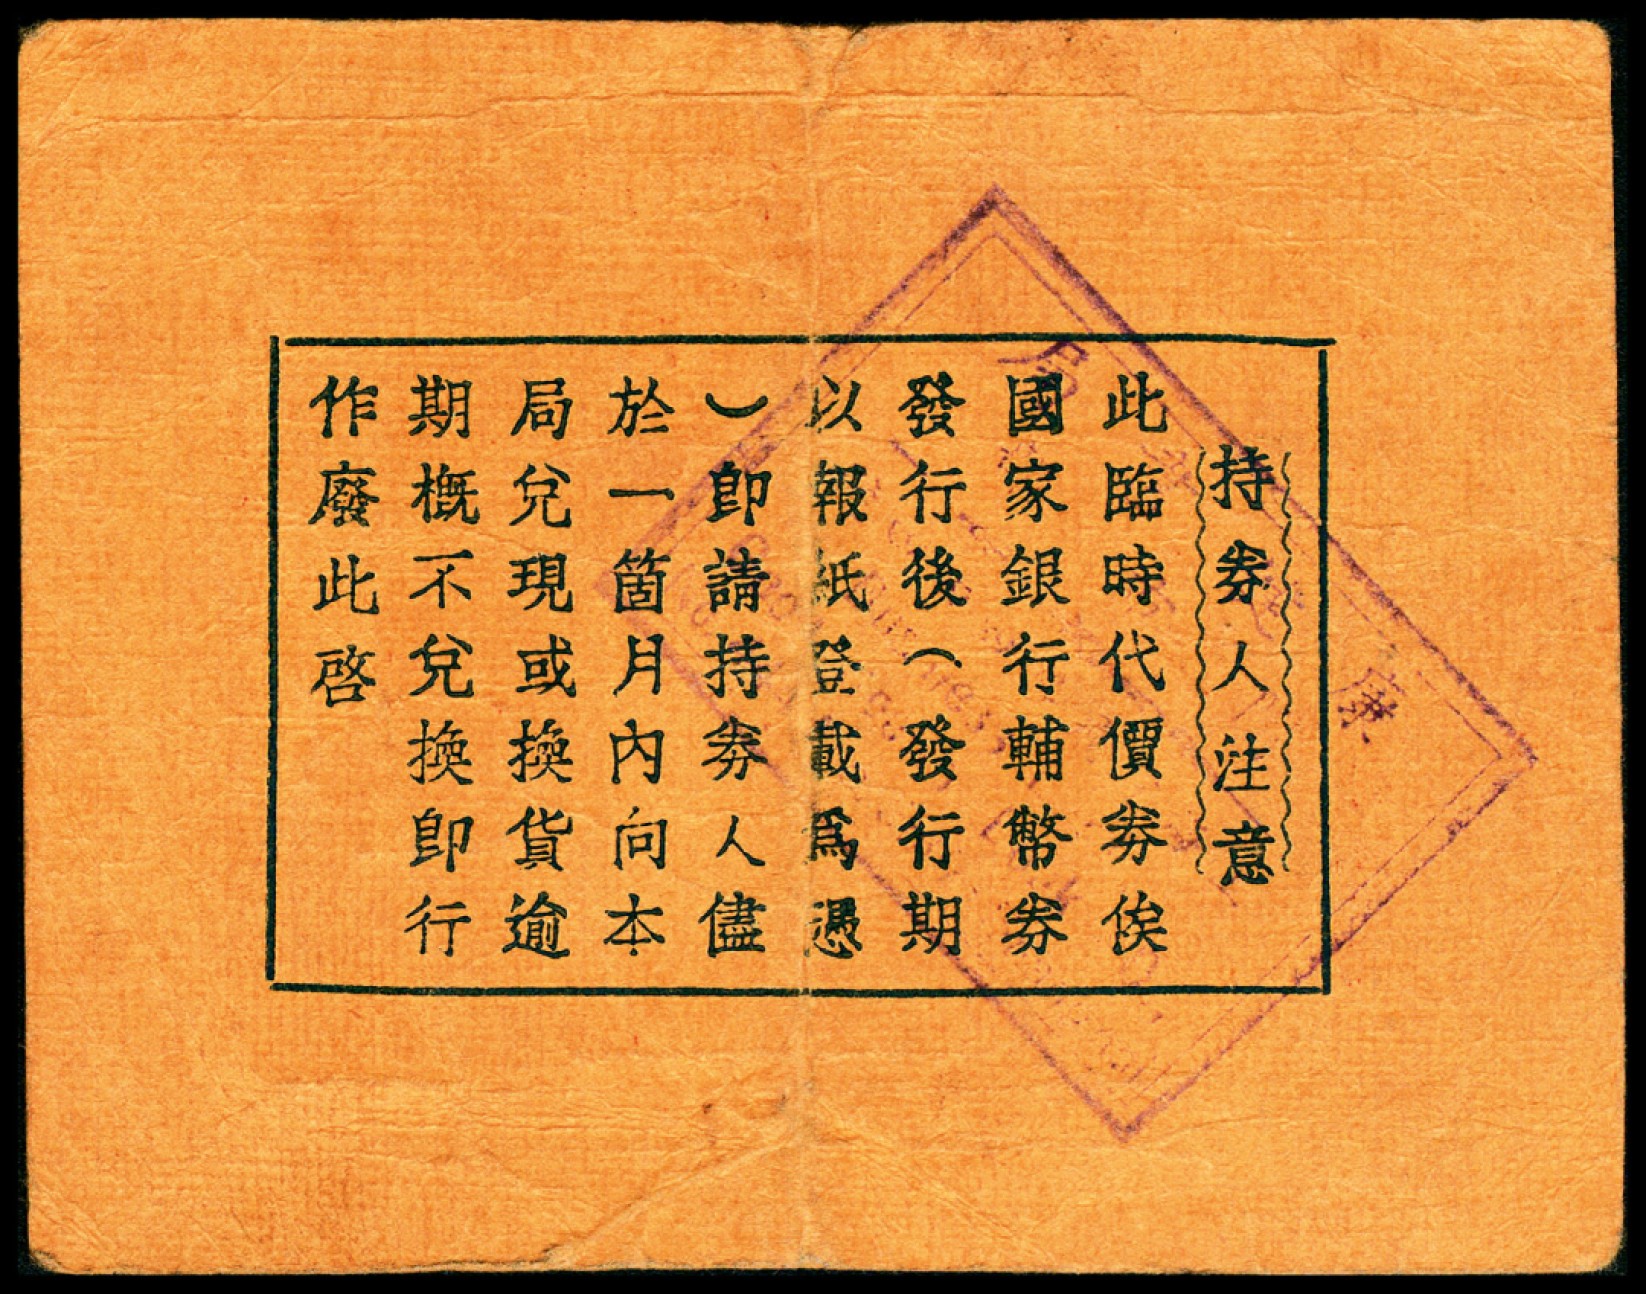 持券人注意
此臨時代價券俟
國家銀行輔幣券
發行後（發行期
以報紙登載爲憑
）卽請持券人儘
於一箇月內向本
局兌現或換貨逾
期概不兌換卽行
作廢此啓